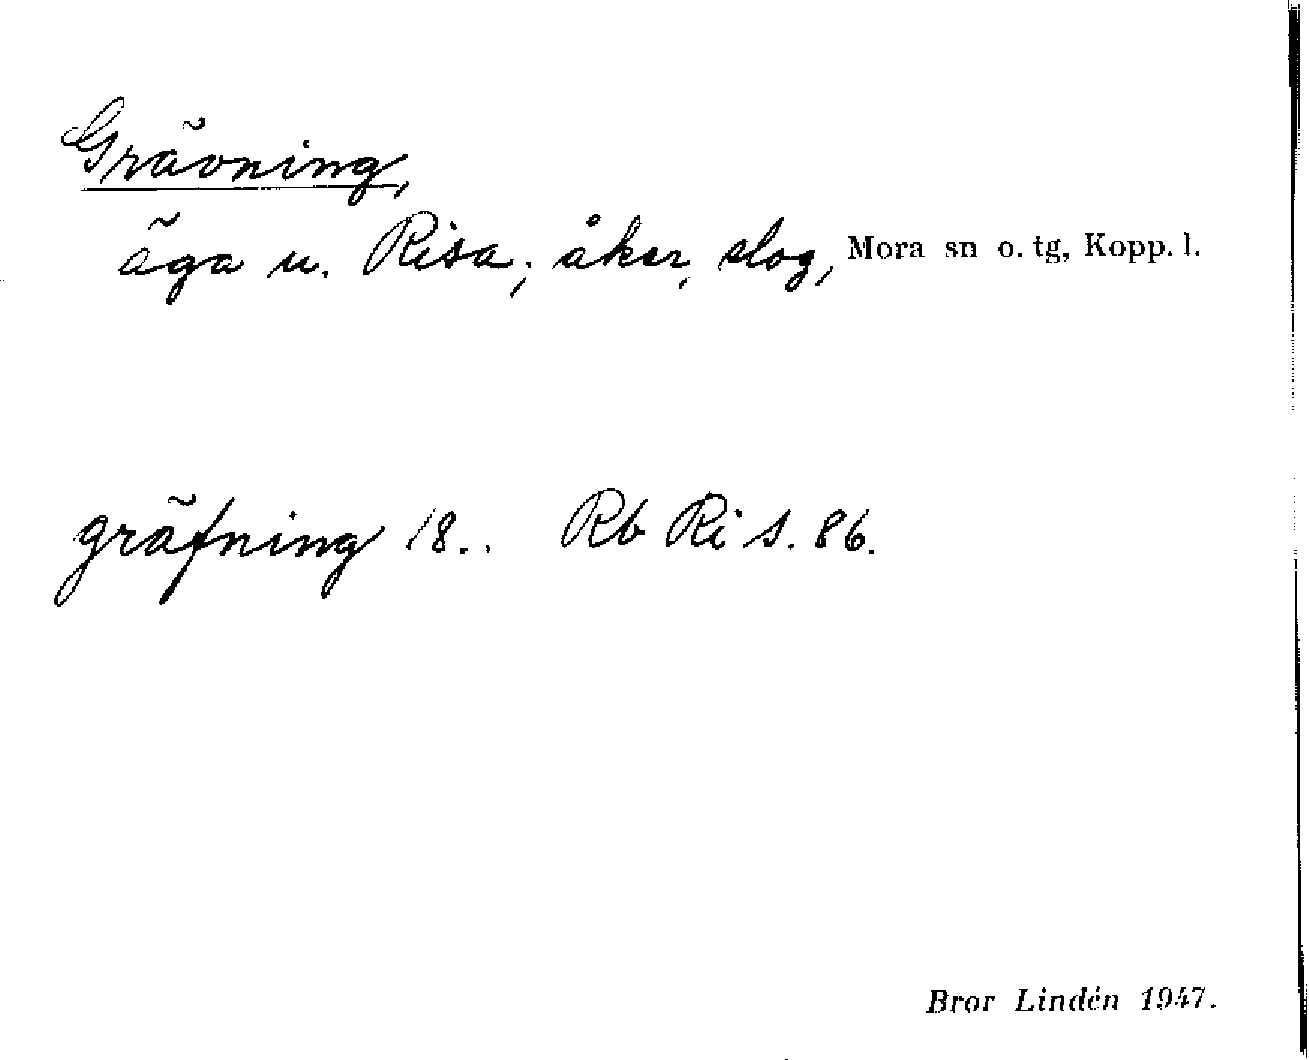 Grävning,
äga u. Risa; åker, slog, Mora sn o. tg, Kopp. l.
gräfning 18.. Rb Ri s. 86.
Bror Lindén 1947.